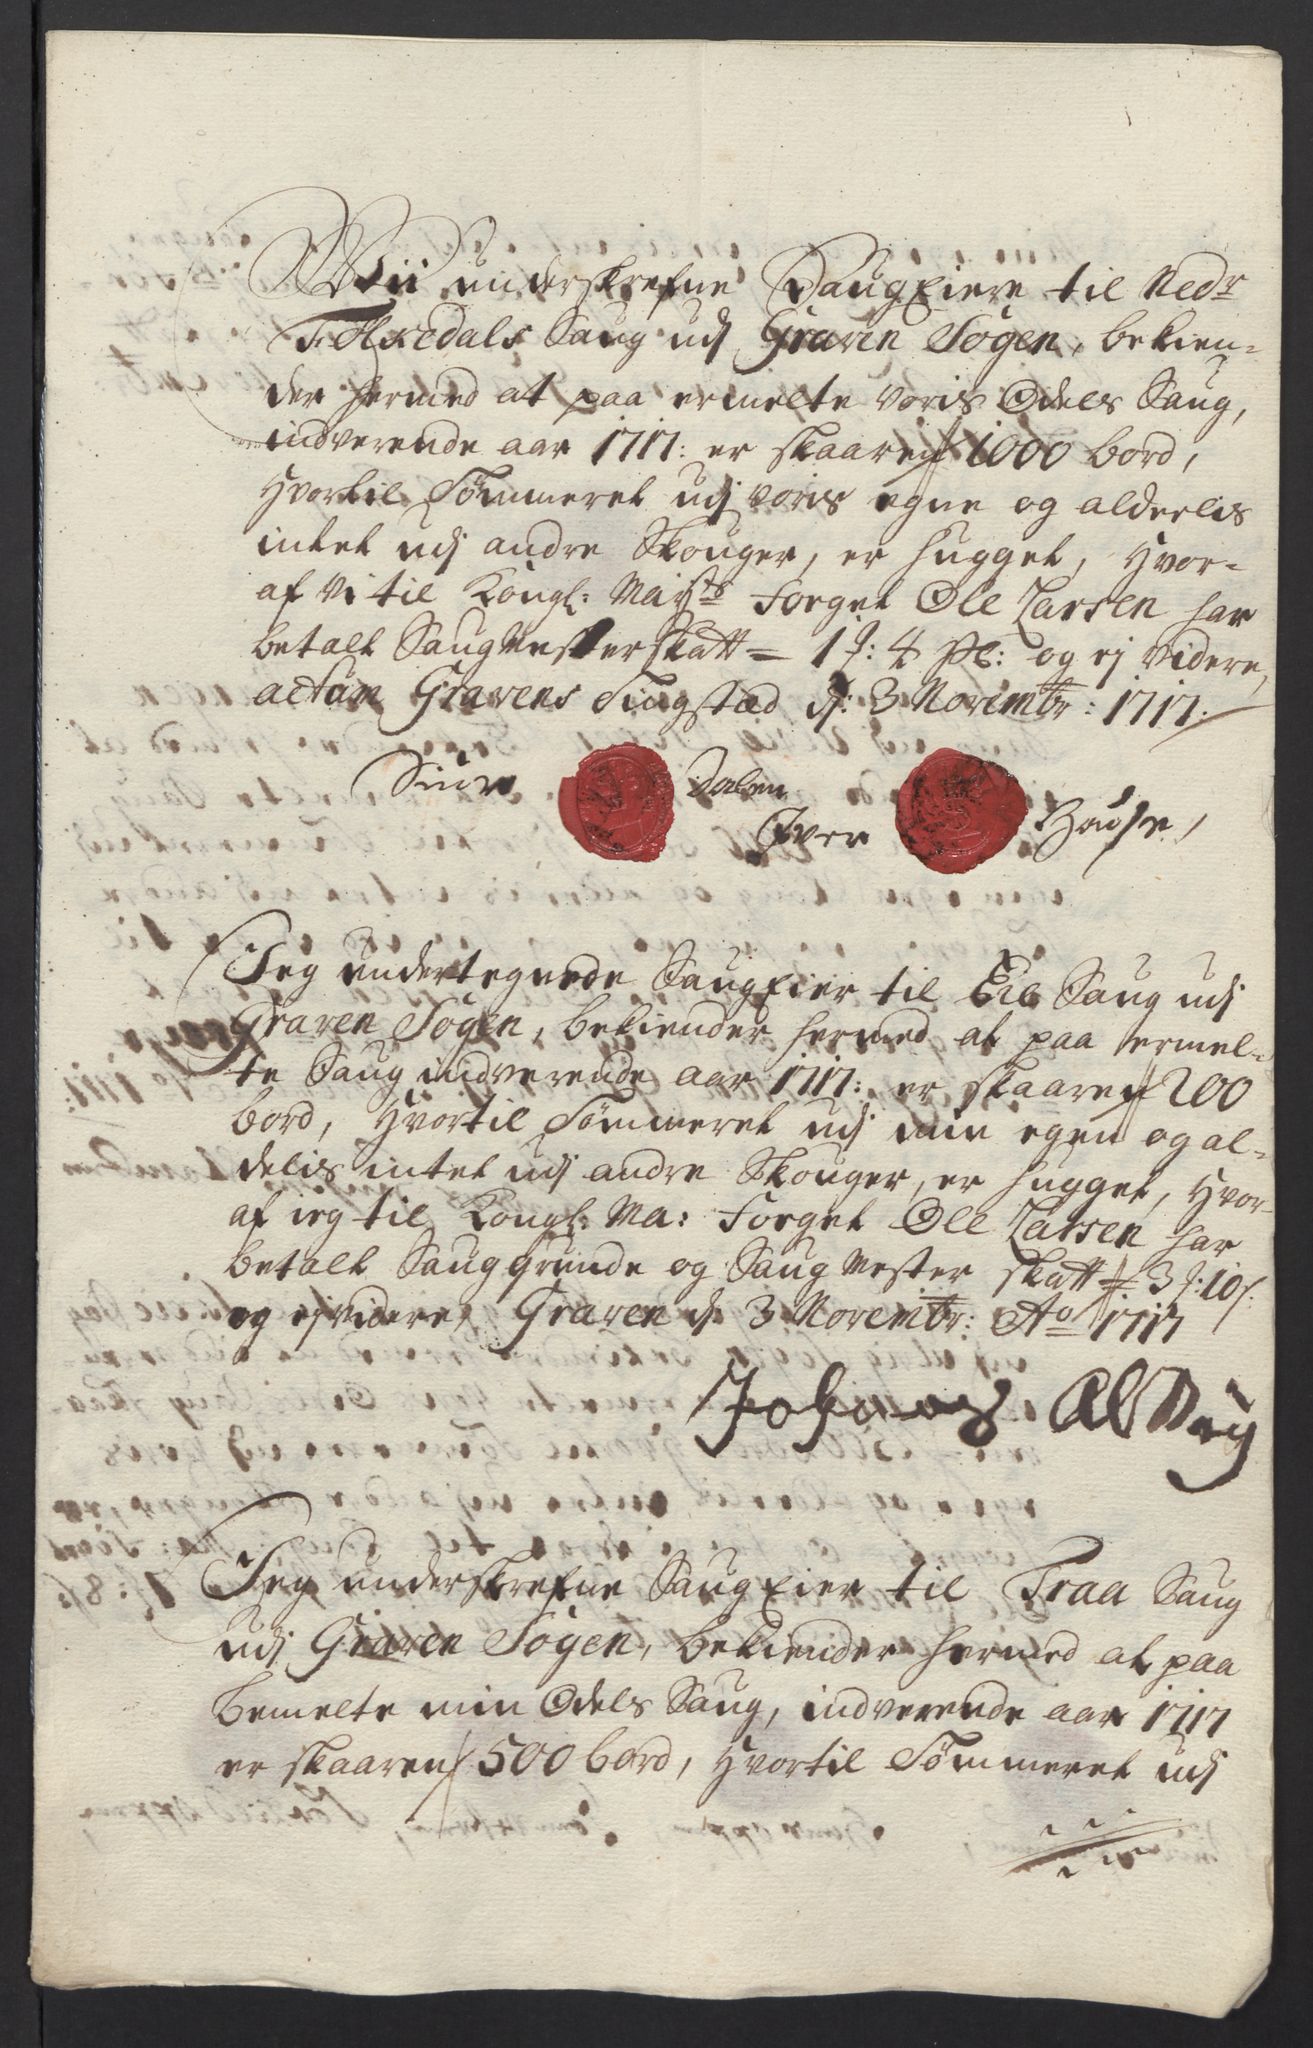 Wii underskrefne Saugeiere til Nedr
Folkedals Saug udj Graven Sogen, bekien-
der hermed at paa ermelte voris Odels Saug,
indverende aar 1717: er skaaren 1000 bord,
hvortil Tømmeret udj voris egne og alderlis
intet udj andre Skouger, er hugget, hvor-
af vi til Kongl: Mayts Foget Ole Larsen har
betalt Saugmesterskatt = 1 : 4 og ej videre,
actum Gravens Tingsted d: 3 Novembr: 1717.
Siur Dalen
Iver Hause,
Jeg undertegnede Saugeier til Eie Saug udj
Graven Sogen, bekiender hermed at paa ermel-
te Saug indverende aar 1717: er skaaren 200
bord, hvortil Tømmeret udj min egen og al-
delis intet udj andre Skouger, er hugget, hvor-
af ieg til Kongl: Ma: Foget Ole Larsen har
betalt Sauggrunde og Saugmester skatt = 3 : 10 s:
og ej videre, Graven d: 3 Novembr: Ao 1717
Johannes
Jeg underskrefne Saugeier til Traa Saug
udj Graven Sogen, bekiender hermed at paa
bemelte min Odels Saug, indverende aar 1717
er skaaren 500 bord, hvortil Tømmeret udj